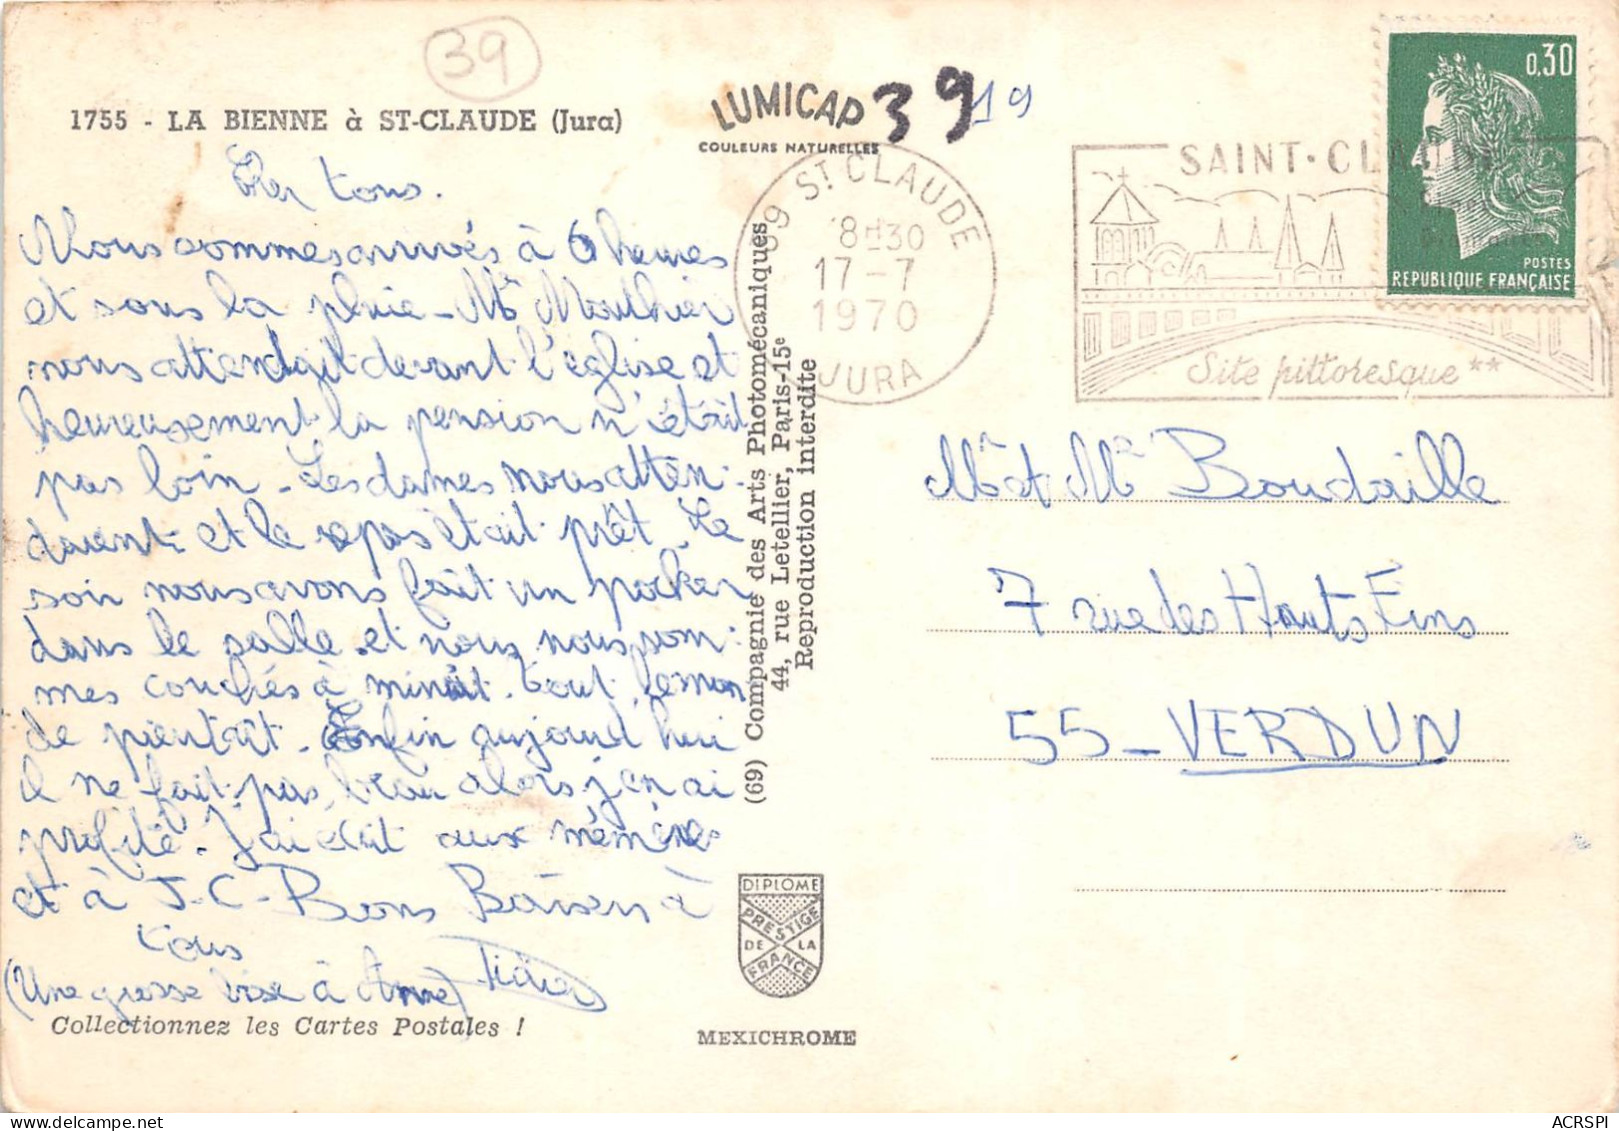 39
1755 - LA BIENNE à ST-CLAUDE (Jura)
LUMICAP
COULEURS NATURELLES
39
19
Cher tous.
Nous sommes arrivés à 6 heures
et sous la pluie - Mr Mouthier
nous attendait devant l'église et
heureusement la pension n'était
pas loin - Les dames nous atten-
daient et le repas était prêt. Le
soir nous avons fait un pocker
dans le salle et nous nous som-
mes couchés à minuit. Tout le mon
de pieutait. Enfin aujourd'hui
il ne fait pas beau alors j'en ai
profité. J'ai écrit aux mémères
et à J-C- Bons Baisers à
tous
(Une grosse bise à Anne) Didier
Collectionnez les Cartes Postales !
(69) Compagnie des Arts Photomécaniques
44, rue Letellier, Paris-15e
Reproduction interdite
DIPLOME
PRESTIGE
DE LA
FRANCE
MEXICHROME
39 ST CLAUDE
18H30
17-7
1970
JURA
SAINT-CLAUDE
Site pittoresque **
0,30
POSTES
REPUBLIQUE FRANÇAISE
Mr et Me Boudaille
7 rue des Hauts Fins
55 - VERDUN
ACRSPI